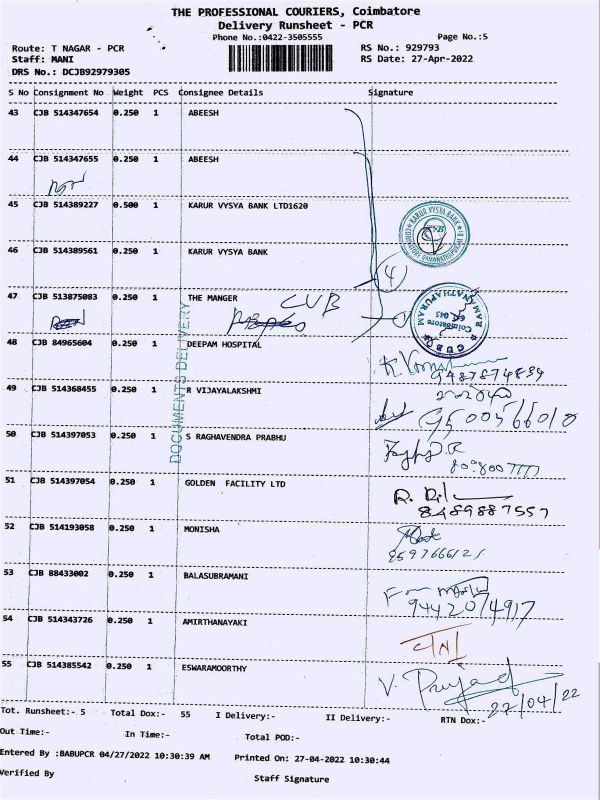 THE PROFESSIONAL COURIERS, Coimbatore
Delivery Runsheet - PCR
Phone No.:0422-3505555 Page No.:5
Route: T NAGAR - PCR RS No.: 929793
Staff: MANI RS Date: 27-Apr-2022
DRS No.: DCJB92979305
S No Consignment No Weight PCS Consignee Details Signature
43 CJB 514347654 0.250 1 ABEESH
44 CJB 514347655 0.250 1 ABEESH
45 CJB 514389227 0.500 1 KARUR VYSYA BANK LTD1620
KARUR VYSYA BANK
46 CJB 514389561 0.250 1 KARUR VYSYA BANK
4
47 CJB 513875083 0.250 1 THE MANGER CUB
RAMANATHAPURAM
Coimbatore
48 CJB 84965604 0.250 1 DEEPAM HOSPITAL
9487874834
49 CJB 514368455 0.250 1 R VIJAYALAKSHMI
50 CJB 514397053 0.250 1 S RAGHAVENDRA PRABHU
51 CJB 514397054 0.250 1 GOLDEN FACILITY LTD
8489887557
52 CJB 514193058 0.250 1 MONISHA
53 CJB 88433002 0.250 1 BALASUBRAMANI
9442074917
54 CJB 514343726 0.250 1 AMIRTHANAYAKI
55 CJB 514385542 0.250 1 ESWARAMOORTHY
V. Prasad
27/04/22
DOCUMENTS DELIVERY
Tot. Runsheet:- 5 Total Dox:- 55 I Delivery:- II Delivery:- RTN Dox:-
Out Time:- In Time:- Total POD:-
Entered By :BABUPCR 04/27/2022 10:30:39 AM Printed On: 27-04-2022 10:30:44
Verified By Staff Signature